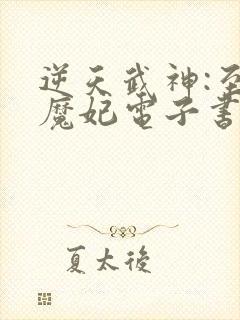 逆天武神:至
魔妃電子書
夏太後